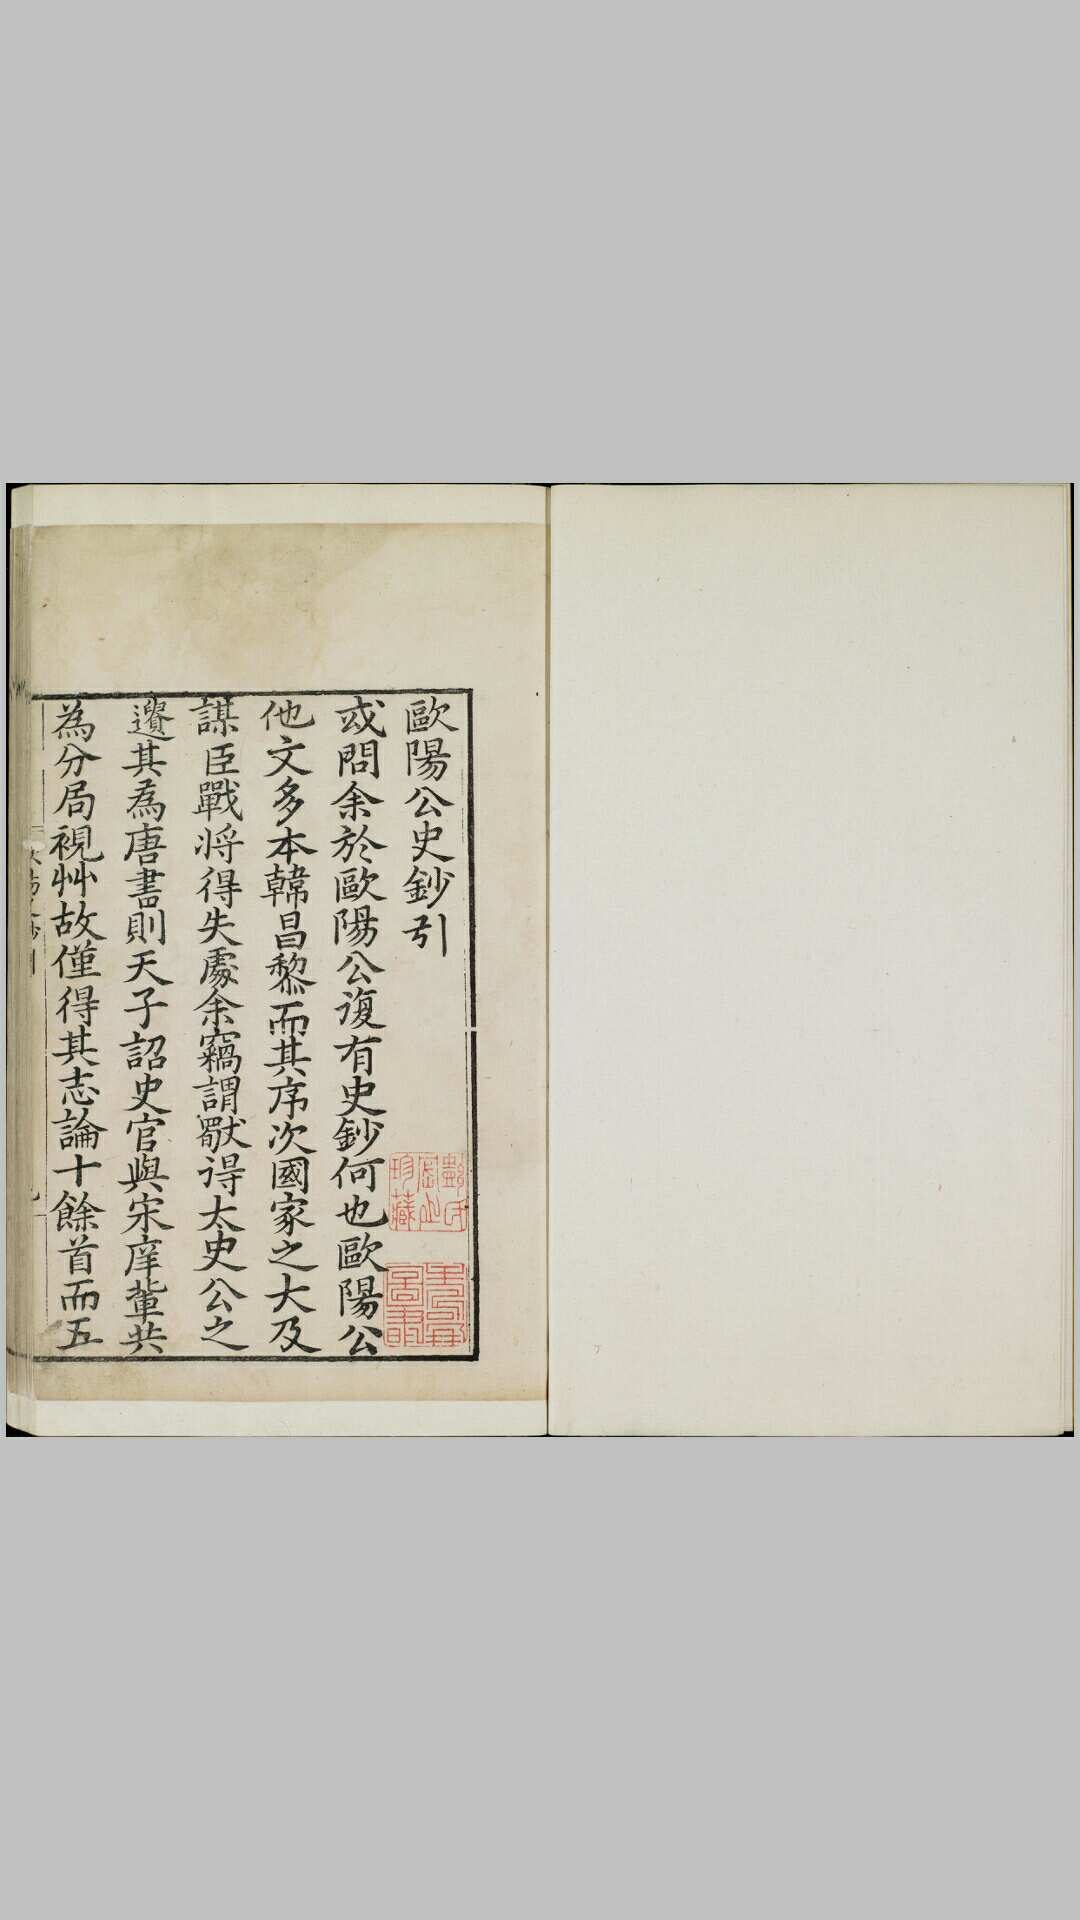 歐陽公史鈔引
或問余於歐陽公復有史鈔何也歐陽公
他文多本韓昌黎而其序次國家之大及
謀臣戰將得失處余竊謂獨得太史公之
遺其為唐書則天子詔史官與宋庠輩共
為分局視艸故僅得其志論十餘首而五